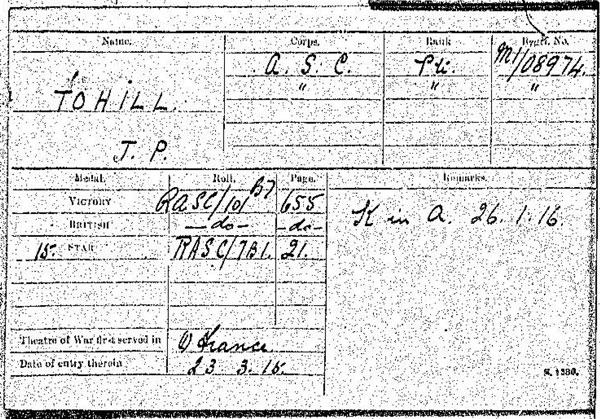 Name. Corps. Rank Regtl. No.
TOHILL. A. S. C. Pte. M1/08974.
" " "
J. P.
Medal. Roll. Page. Remarks.
VICTORY RASC/101 B7 655
BRITISH —do— —do—
15 STAR RASC/7B1. 21.
K in A. 26.1.16.
Theatre of War first served in (1) France.
Date of entry therein 23 3.15.